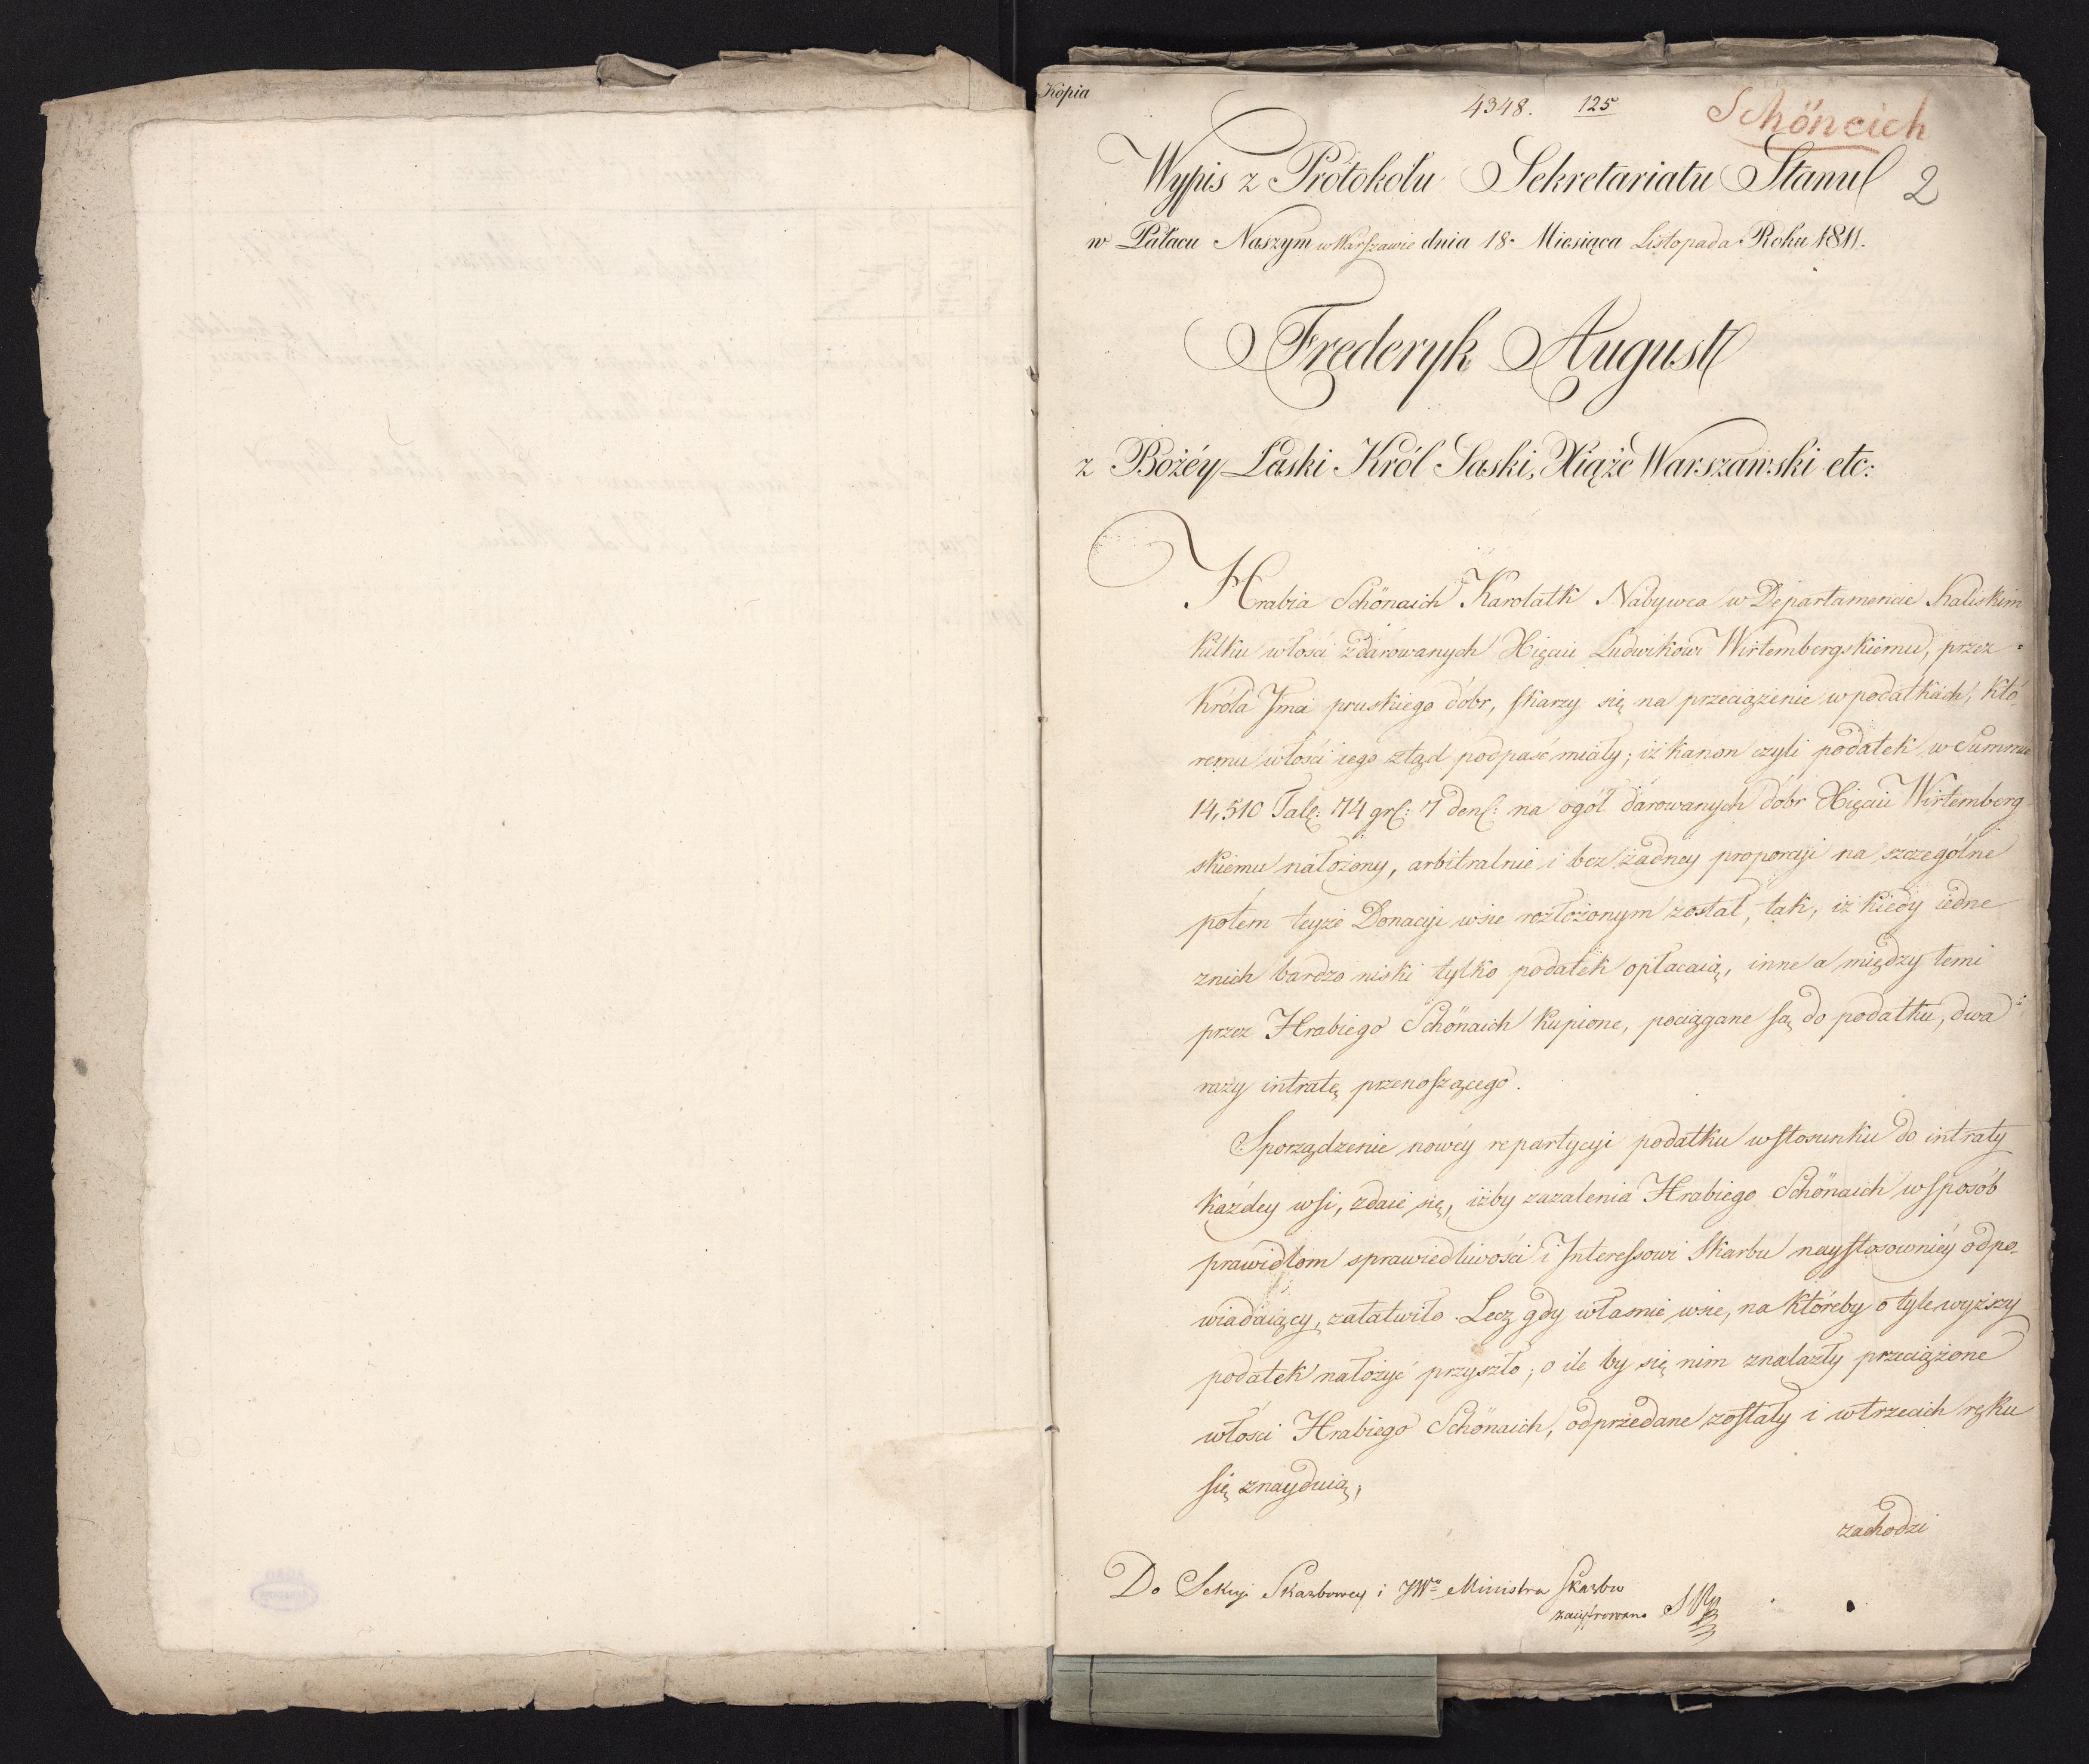 Kopia
4348. 125
Schöneich
Wypis z Protokołu Sekretariatu Stanu 2
w Pałacu Naszym w Warszawie dnia 18. Miesiąca Listopada Roku 1811.
Frederyk August
z Bożéy Łaski Król Saski, Xiąże Warszawski etc:
Hrabia Schönaich Karolath Nabywca w Departamencie Kaliskim
kilku włości z darowanych Xięciu Ludwikowi Wirtembergskiemu, przez
Króla Jmci pruskiego dóbr, skarzy się na przeciążenie w podatkach, któ
remu włości iego ztąd podpaść miały; iż kanon czyli podatek w Summie
14,510 Tal: 74 gr: 7 den: na ogół darowanych dóbr Xięciu Wirtemberg
skiemu nałożony, arbitralnie i bez żadney proporcyi na szczególne
potem teyże Donacyi wsie rozłożonym został, tak, iż kiedy iedne
znich bardzo niski tylko podatek opłacaią, inne a między temi
przez Hrabiego Schönaich kupione, pociągane są do podatku, dwa
razy intratę przenoszącego.
Sporządzenie nowéy repartycyi podatku wstosunku do intraty
każdey wsi, zdaie się, iżby zażalenia Hrabiego Schönaich wsposób
prawidłom sprawiedliwości i Interessowi Skarbu naystosowniéy odpo-
wiadaiący, załatwiło. Lecz gdy własnie wsie, na któreby o tyle wyższy
podatek nałożyć przyszło, o ile by się nim znalazły przeciążone
włości Hrabiego Schönaich, odprzedane zostały i wtrzecich ręku
się znayduią,
zachodzi
Do Sekcyi Skarbowey i JWo Ministra Skarbu